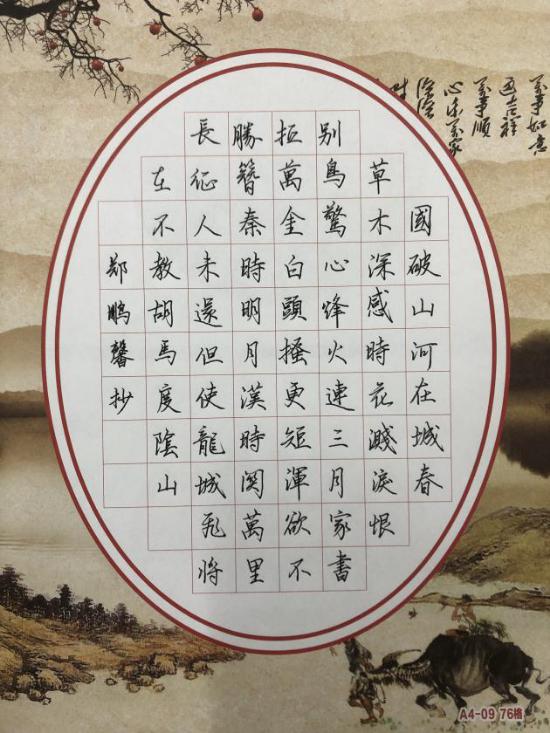 萬事如意
萬事順
國破山河在城春
草木深感時花濺淚恨
别鳥驚心烽火連三月家書
拒萬金白頭搔更短渾欲不
勝簪秦時明月漢時関萬里
長征人未還但使龍城飛將
在不教胡馬度陰山
郑鹏馨抄
A4-09 76格